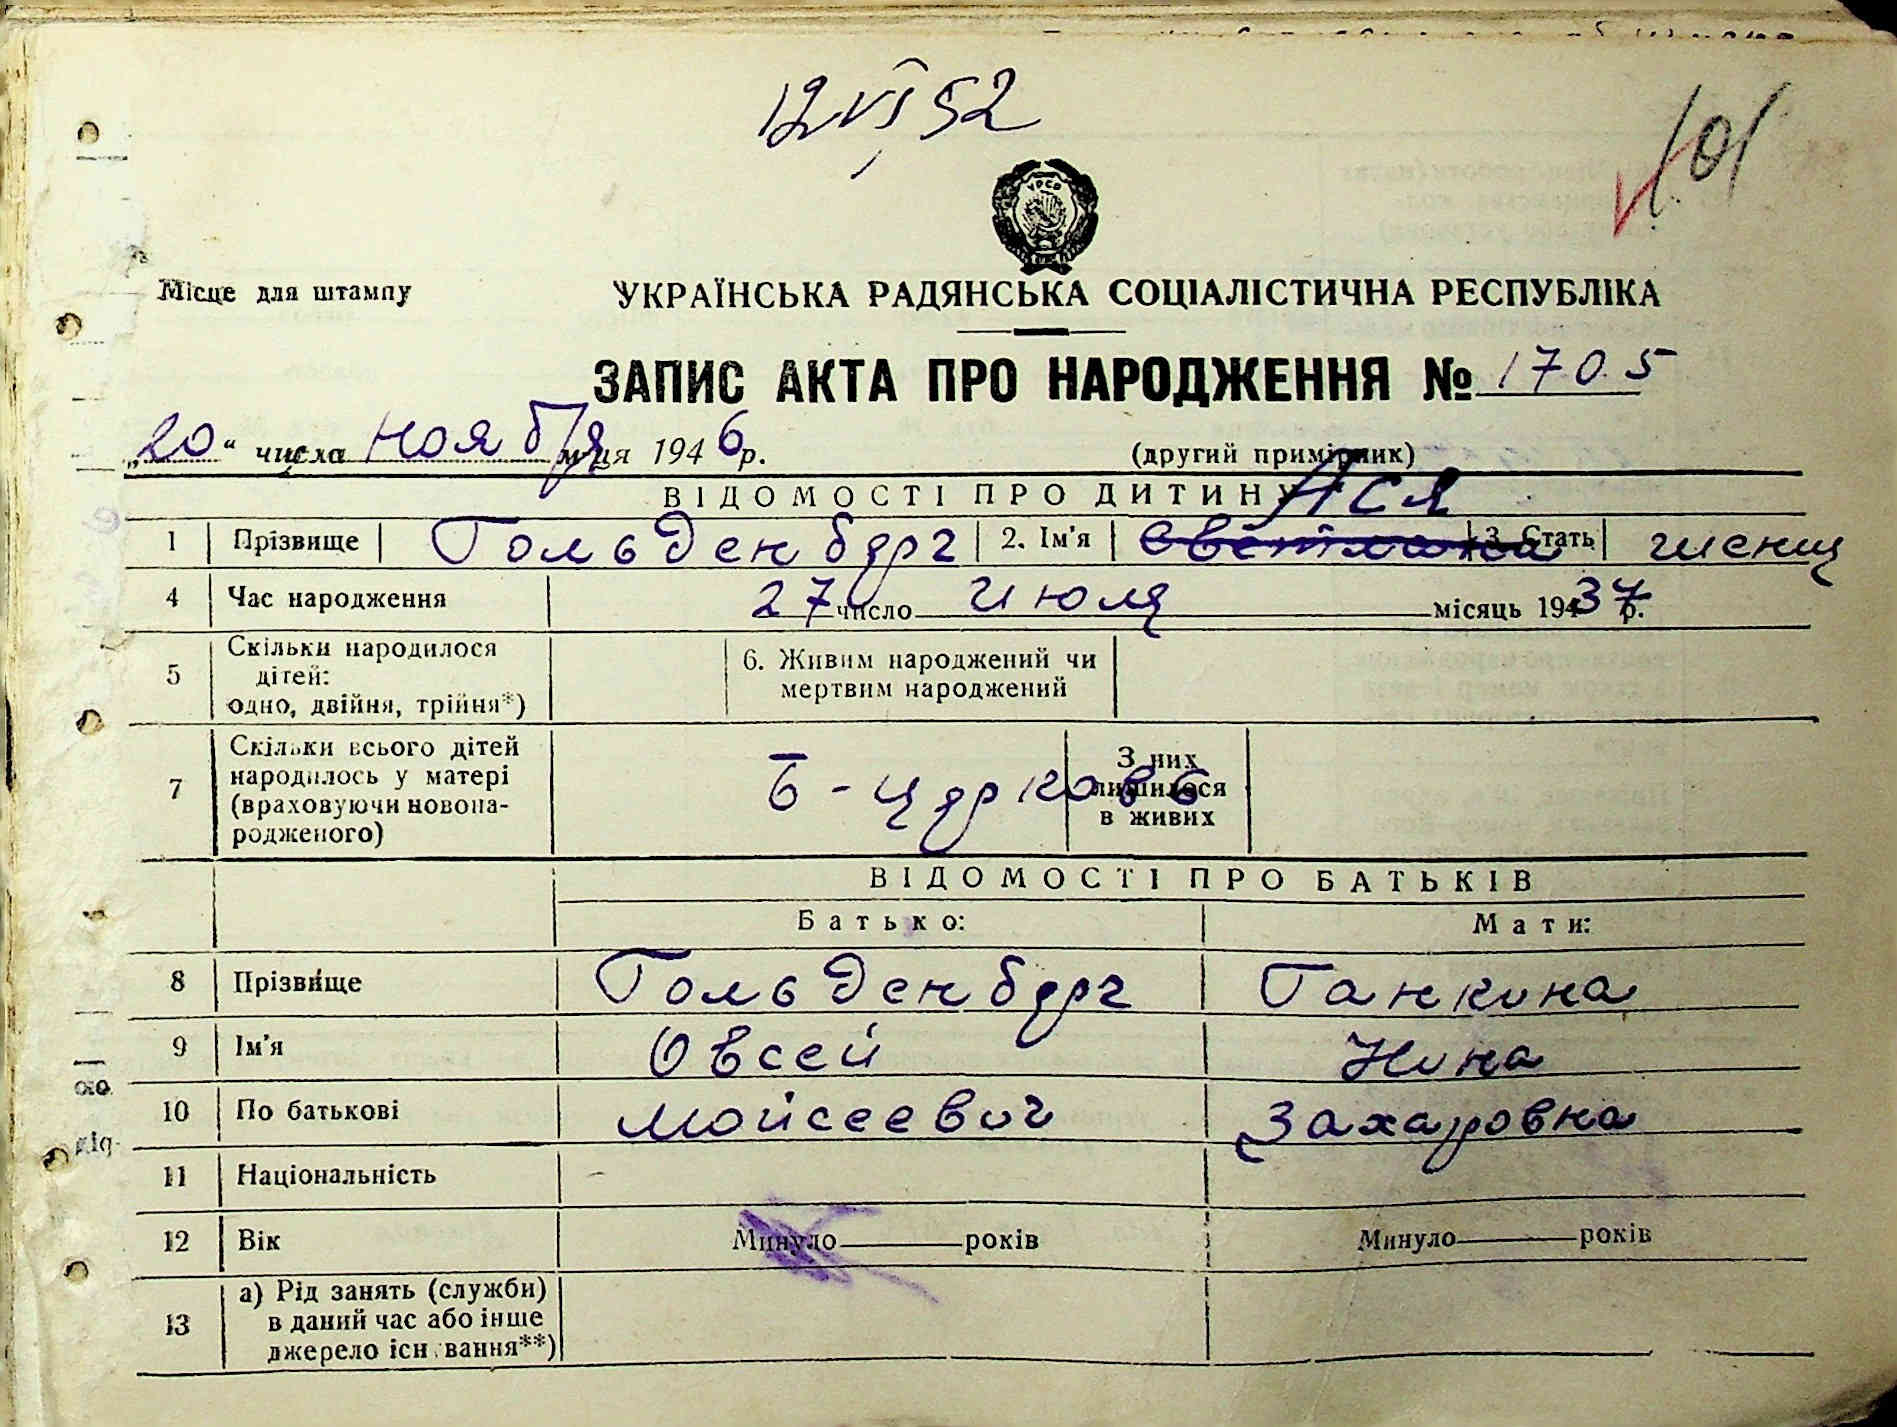 12 VI 52
101
УРСР
Місце для штампу
УКРАЇНСЬКА РАДЯНСЬКА СОЦІАЛІСТИЧНА РЕСПУБЛІКА
ЗАПИС АКТА ПРО НАРОДЖЕННЯ № 1705
„20“ числа ноября м-ця 1946 р. (другий примірник)
ВІДОМОСТІ ПРО ДИТИНУ
Ася
1 Прізвище Гольденберг 2. Ім'я Светлана 3. Стать женщ
4 Час народження 27 число июля місяць 1937 р.
5 Скільки народилося дітей: одно, двійня, трійня*) 6. Живим народжений чи мертвим народжений
7 Скільки всього дітей народилось у матері (враховуючи новонародженого) Б-Церковь З них лишилося в живих
ВІДОМОСТІ ПРО БАТЬКІВ
Батько: Мати:
8 Прізвище Гольденберг Ганкина
9 Ім'я Овсей Нина
10 По батькові Мойсеевич Захаровна
11 Національність
12 Вік Минуло років Минуло років
13 а) Рід занять (служби) в даний час або інше джерело існування**)